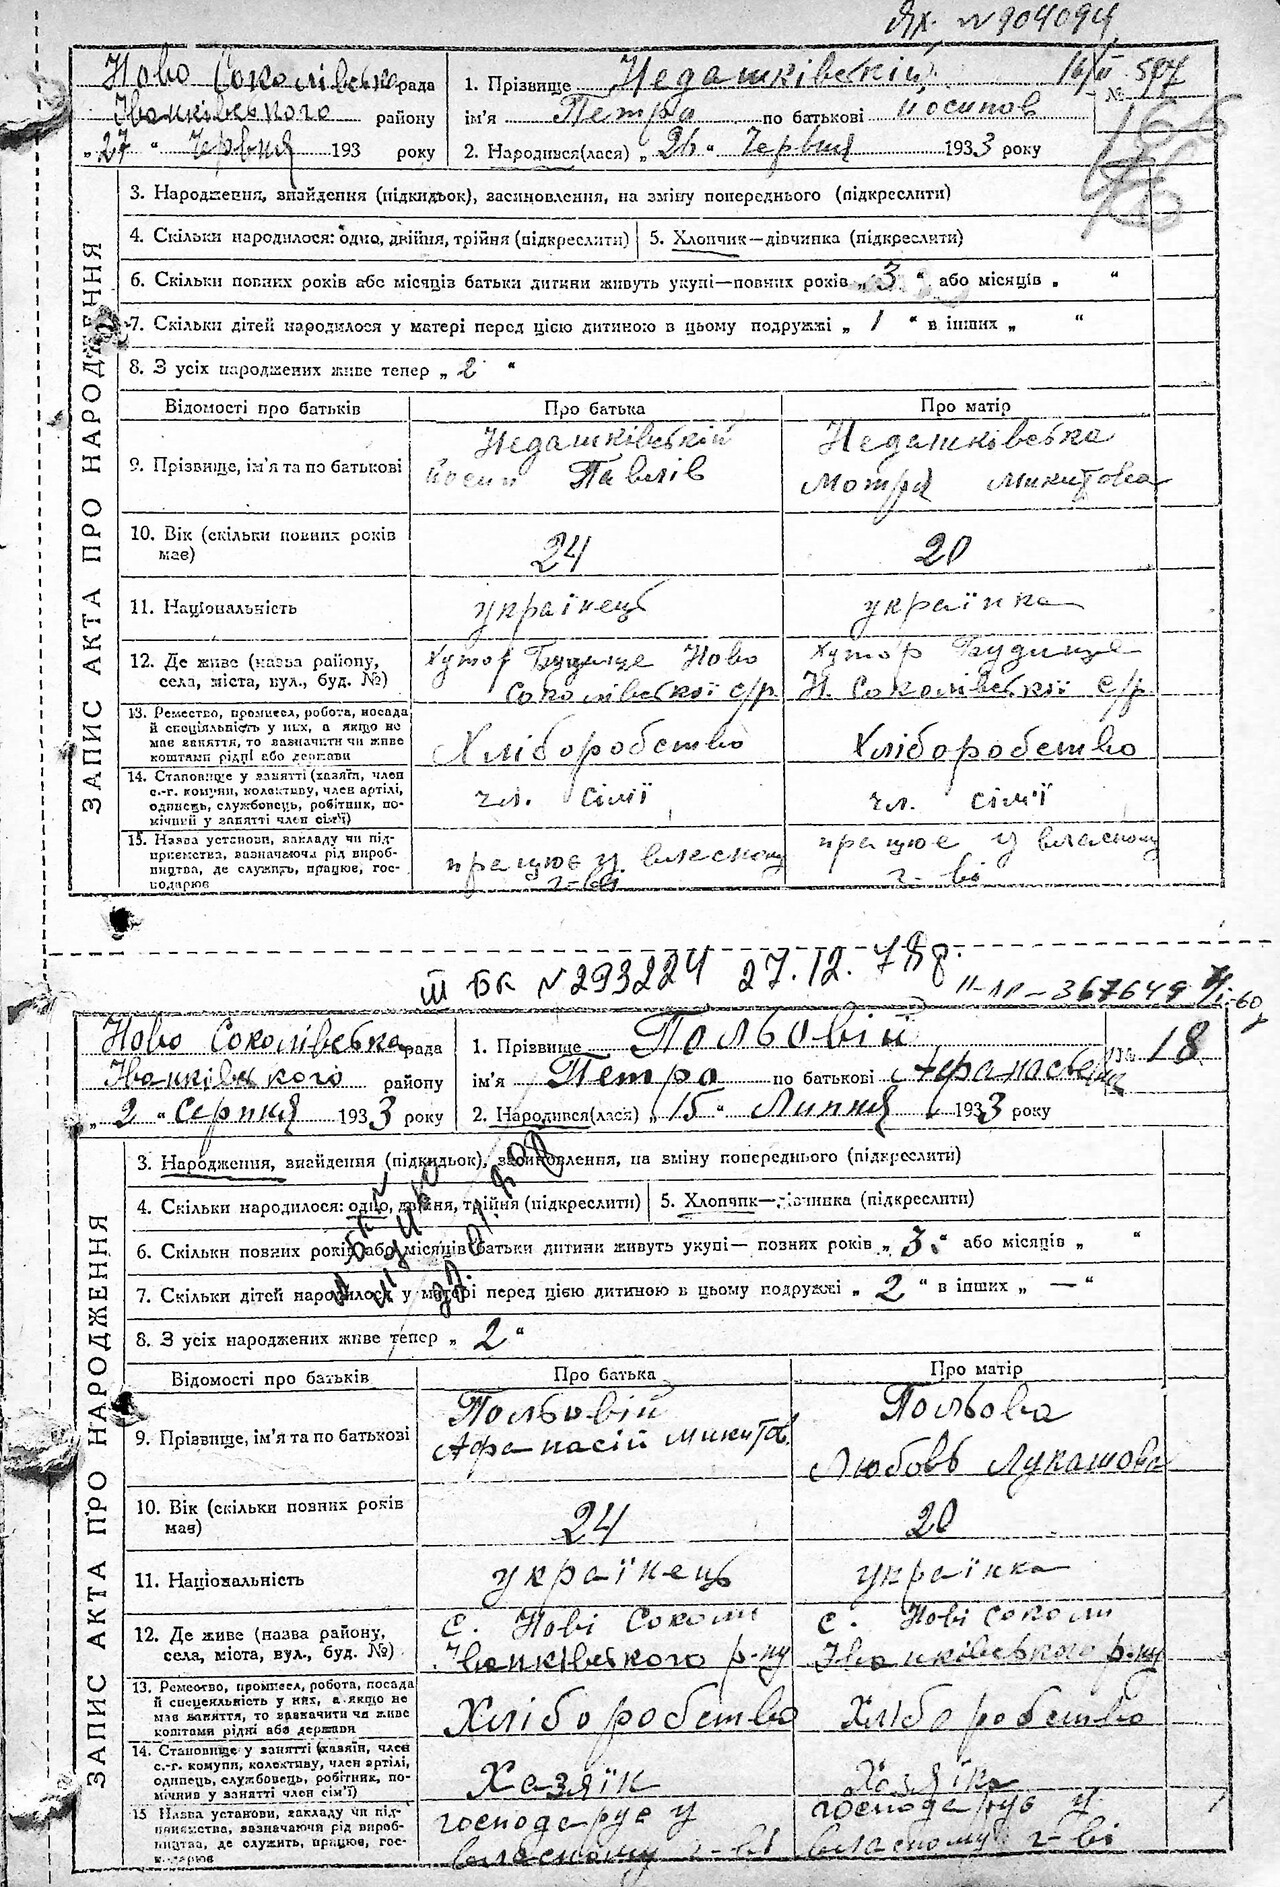 №904094
Ново Соколівська рада
Іванківського району
„27“ Червня 193 року
1. Прізвище Недашківський
ім'я Петро по батькові Йосипов
2. Народився(лася) „26“ Червня 1933 року
№ 507
ЗАПИС АКТА ПРО НАРОДЖЕННЯ
3. Народження, знайдення (підкидьок), засиновлення, на зміну попереднього (підкреслити)
4. Скільки народилося: одно, двійня, трійня (підкреслити) 5. Хлопчик—дівчинка (підкреслити)
6. Скільки повних років або місяців батьки дитини живуть укупі—повних років „3“ або місяців „ “
7. Скільки дітей народилося у матері перед цією дитиною в цьому подружжі „1“ в інших „ “
8. З усіх народжених живе тепер „2“
Відомості про батьків Про батька Про матір
9. Прізвище, ім'я та по батькові
Недашківський
Йосип Павлів
Недашківська
Мотря Микитова
10. Вік (скільки повних років має) 24 20
11. Національність українець українка
12. Де живе (назва району,
села, міста, вул., буд. №)
Хутор Будище Ново
Соколівської с/р.
Хутор Будище
Н. Соколівської с/р
13. Ремество, промисел, робота, посада
й спеціяльність у них, а якщо не
має заняття, то зазначити чи живе
коштами рідні або держави
Хліборобство Хліборобство
14. Становище у занятті (хазяїн, член
с.-г. комуни, колективу, член артілі,
одинець, службовець, робітник, по-
мічний у занятті член сім'ї)
чл. сімї чл. сім'ї
15. Назва установи, закладу чи під-
приємства, зазначаючи рід вироб-
ництва, де служить, працює, гос-
подарює
працює у власному
г-ві
працює у власному
г-ві
ІІІ БК №293224 27.12.
Ново Соколівська рада
Іванківського району
„2“ Серпня 1933 року
1. Прізвище Польовій
ім'я Петро по батькові
2. Народився(лася) „15“ Липня 1933 року
№ 18
ЗАПИС АКТА ПРО НАРОДЖЕННЯ
3. Народження, знайдення (підкидьок), засиновлення, на зміну попереднього (підкреслити)
4. Скільки народилося: одно, двійня, трійня (підкреслити) 5. Хлопчик—дівчинка (підкреслити)
6. Скільки повних років або місяців батьки дитини живуть укупі— повних років „3“ або місяців „ “
7. Скільки дітей народилося у матері перед цією дитиною в цьому подружжі „2“ в інших „—“
8. З усіх народжених живе тепер „2“
Відомості про батьків Про батька Про матір
9. Прізвище, ім'я та по батькові
Польовій
Афанасій Микитов.
Польова
Любовь Лукашова
10. Вік (скільки повних років має) 24 20
11. Національність українець українка
12. Де живе (назва району,
села, міста, вул., буд. №)
с. Нові Соколи
Іванківського р-ну
с. Нові Соколи
Іванківського р-ну
13. Ремество, промисел, робота, посада
й спецеяльність у них, а якщо не
має заняття, то зазначити чи живе
коштами рідні або держави
Хліборобство Хліборобство
14. Становище у занятті (хазяїн, член
с.-г. комуни, колективу, член артілі,
одинець, службовець, робітник, по-
мічник у занятті член сім'ї)
Хазяїн Хазяйка
15 Назва установи, закладу чи під-
приємства, зазначаючи рід вироб-
ництва, де служить, працює, гос-
подарює
господарує у
власному г-ві
господарує у
власному г-ві